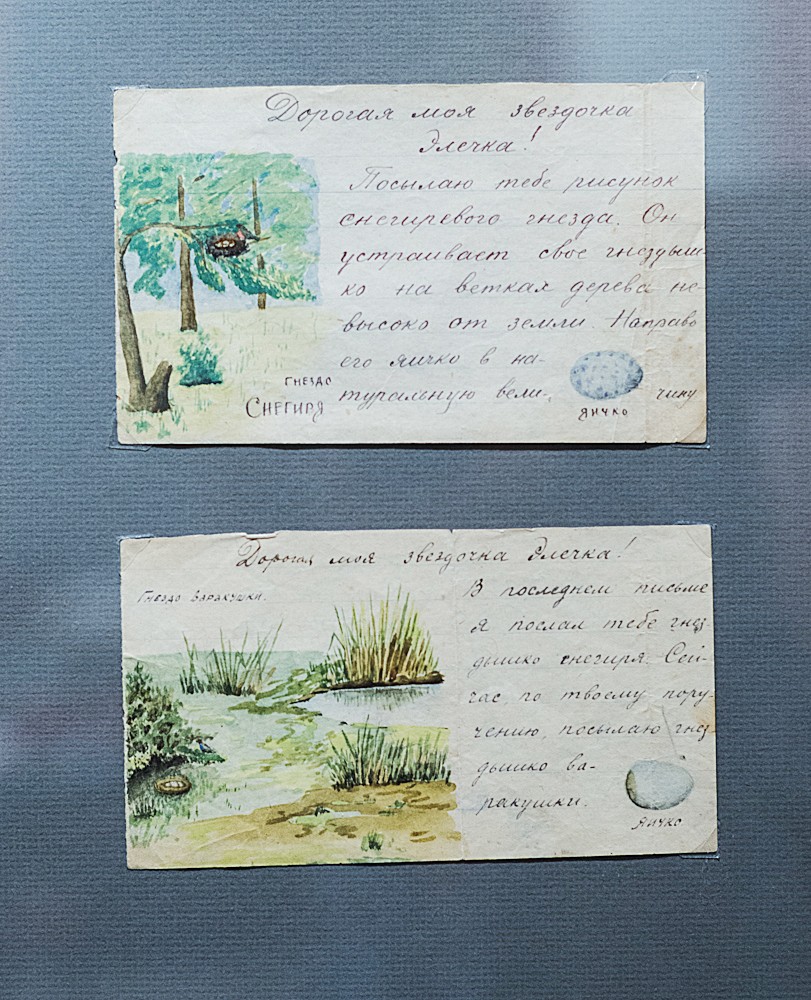 Дорогая моя звездочка
Элечка!
Посылаю тебе рисунок
снегиревого гнезда. Он
устраивает свое гнездыш-
ко на ветках дерева не-
высоко от земли. Направо
его яичко в на-
туральную вели- чину
гнездо
Снегиря
яичко
Дорогая моя звездочка Элечка!
Гнездо варакушки.
В последнем письме
я послал тебе гнез
дышко снегиря. Сей-
час, по твоему пору-
чению, посылаю гнез
дышко ва-
ракушки.
яичко